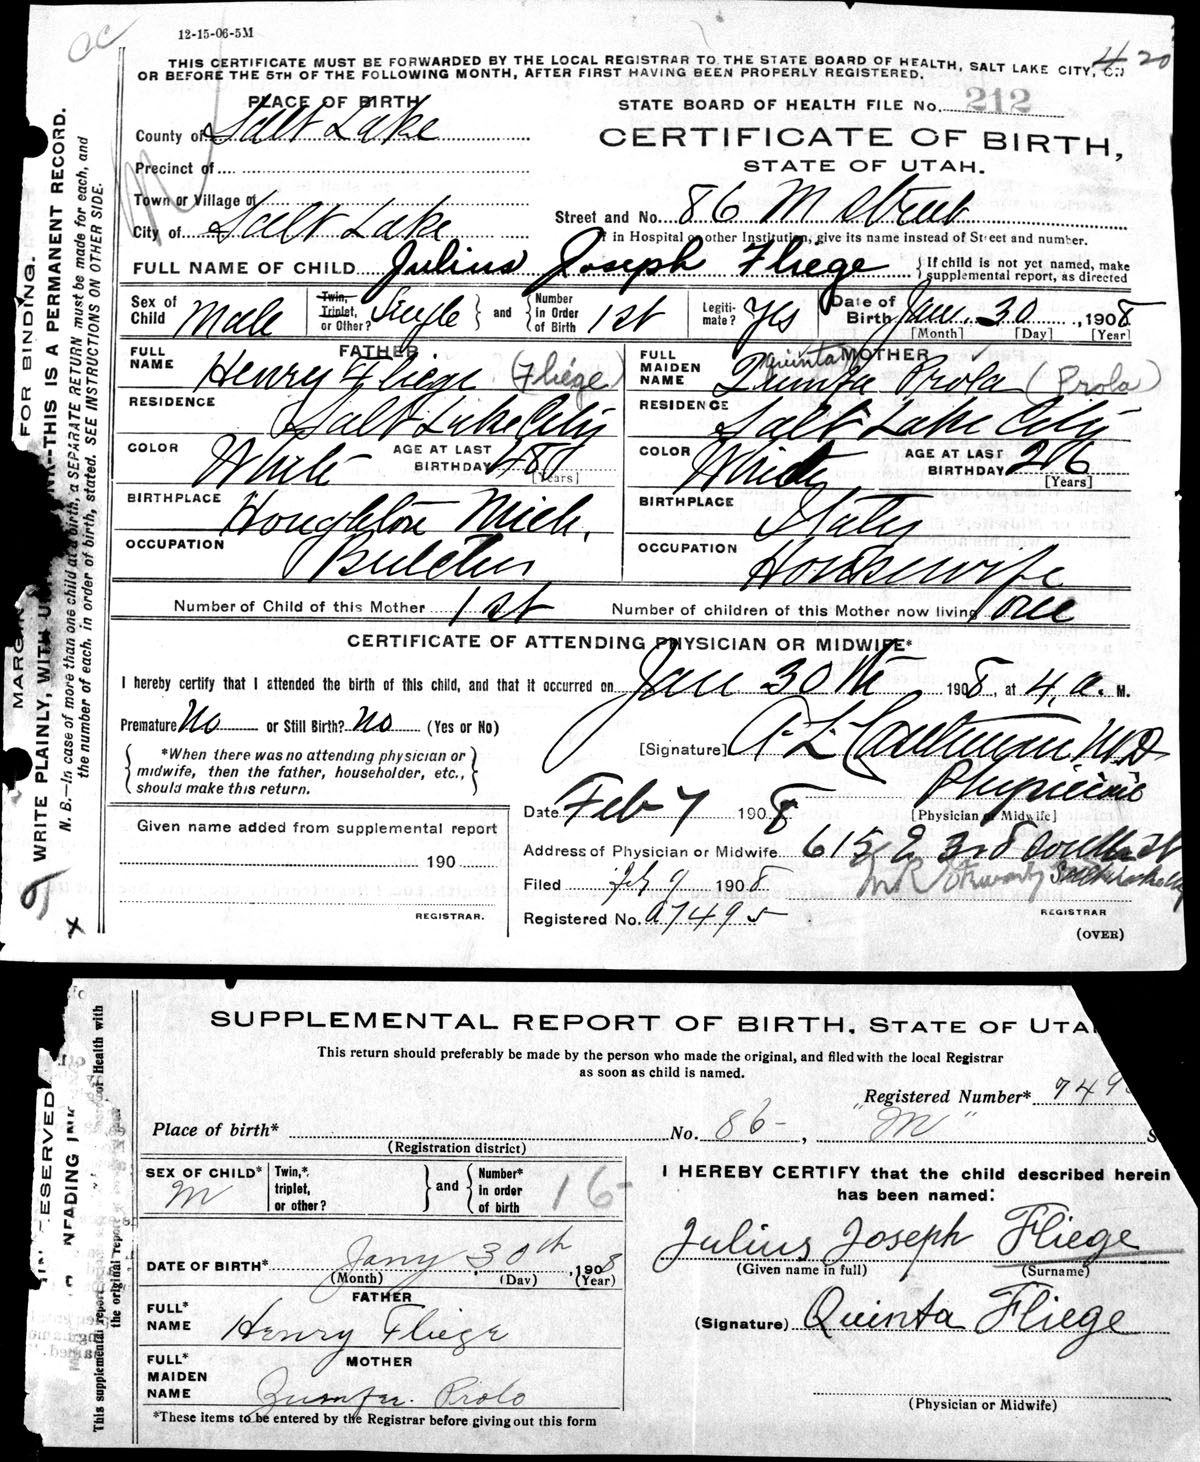 12-15-06-5M
THIS CERTIFICATE MUST BE FORWARDED BY THE LOCAL REGISTRAR TO THE STATE BOARD OF HEALTH, SALT LAKE CITY, ON
OR BEFORE THE 5TH OF THE FOLLOWING MONTH, AFTER FIRST HAVING BEEN PROPERLY REGISTERED.
420
PLACE OF BIRTH
STATE BOARD OF HEALTH FILE No. 212
County of Salt Lake
CERTIFICATE OF BIRTH,
STATE OF UTAH.
Precinct of
Town or Village of
City of Salt Lake
Street and No. 86 M Street
If in Hospital or other Institution, give its name instead of Street and number.
FULL NAME OF CHILD Julius Joseph Fliege
{ If child is not yet named, make
supplemental report, as directed
Sex of Child Male
Twin, Triplet, or Other? Single } and { Number in Order of Birth 1st
Legiti-mate? Yes
Date of Birth Jan 30, 1908
[Month] [Day] [Year]
FATHER
FULL NAME Henry Fliege (Fliege)
RESIDENCE Salt Lake City
COLOR White AGE AT LAST BIRTHDAY 48
[Years]
BIRTHPLACE Houghton Mich.
OCCUPATION Butcher
MOTHER
Quinta
FULL MAIDEN NAME Prola (Prola)
RESIDENCE Salt Lake City
COLOR White AGE AT LAST BIRTHDAY 26
[Years]
BIRTHPLACE Italy
OCCUPATION Housewife
Number of Child of this Mother 1st Number of children of this Mother now living one
CERTIFICATE OF ATTENDING PHYSICIAN OR MIDWIFE*
I hereby certify that I attended the birth of this child, and that it occurred on Jan 30th 1908, at 4 a. M.
Premature No or Still Birth? No (Yes or No)
{ *When there was no attending physician or
midwife, then the father, householder, etc.,
should make this return. }
[Signature] M.D.
Physician
[Physician or Midwife]
Date Feb 7 1908
Given name added from supplemental report
190
REGISTRAR.
Address of Physician or Midwife 615 E 3rd South St
Filed 1908
Registered No. a7495
REGISTRAR
(OVER)
MARGIN FOR BINDING.
WRITE PLAINLY, WITH THIS IS A PERMANENT RECORD.
N. B.—In case of more than one child at a birth, a SEPARATE RETURN must be made for each, and
the number of each, in order of birth, stated. SEE INSTRUCTIONS ON OTHER SIDE.
SUPPLEMENTAL REPORT OF BIRTH, STATE OF UTA
This return should preferably be made by the person who made the original, and filed with the local Registrar
as soon as child is named.
Registered Number* 749
Place of birth* No. 86 - , "M" S
(Registration district)
SEX OF CHILD* M
Twin,* triplet, or other? } and { Number* in order of birth 16-
I HEREBY CERTIFY that the child described herein
has been named:
Julius Joseph Fliege
(Given name in full) (Surname)
DATE OF BIRTH* Jany 30th, 1908
(Month) (Day) (Year)
FATHER
FULL* NAME Henry Fliege
(Signature) Quinta Fliege
MOTHER
FULL* MAIDEN NAME Prolo
(Physician or Midwife)
*These items to be entered by the Registrar before giving out this form
This supplemental report of Health with
the original report